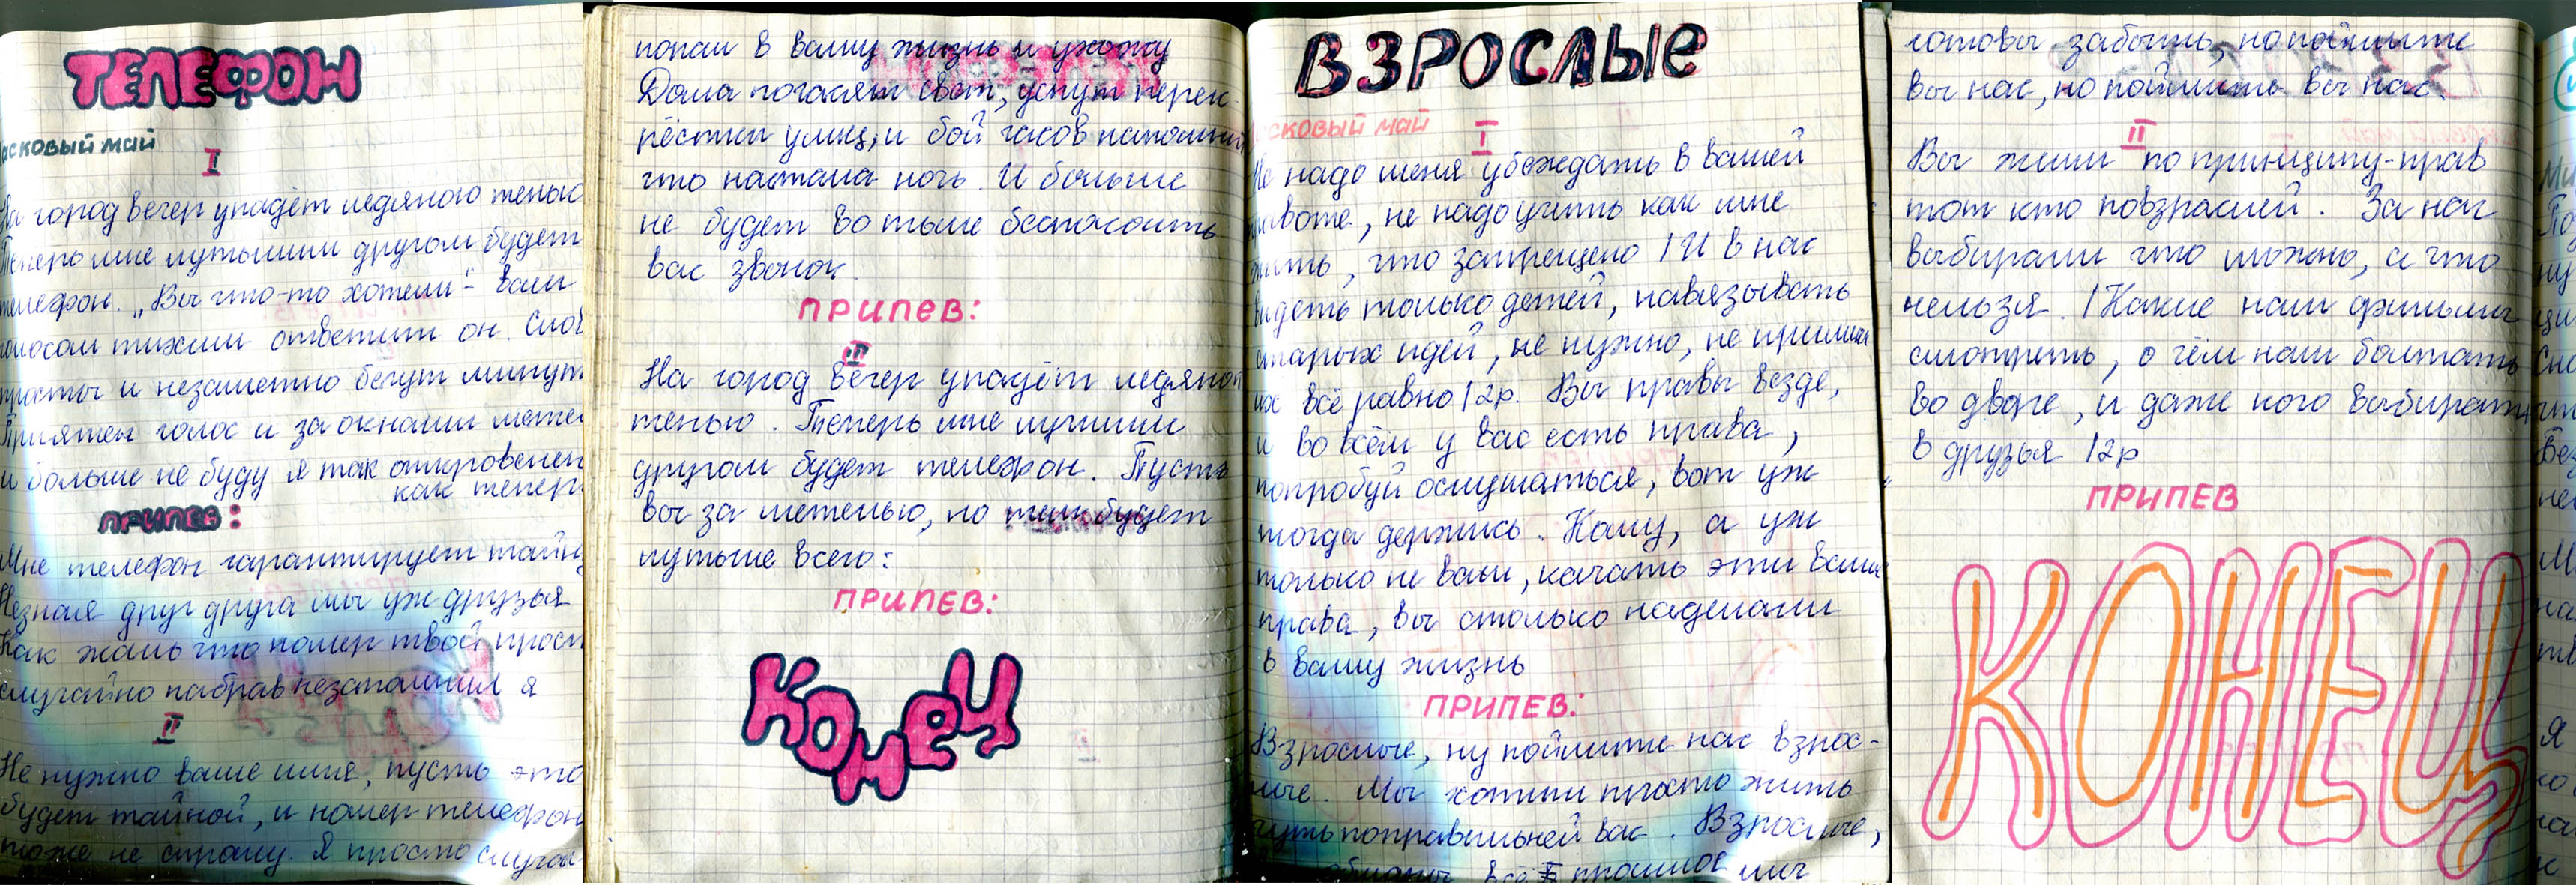 ТЕЛЕФОН
асковый май
I
На город вечер упадёт ледяною тенью
Теперь мне лутьшим другом будет
телефон. „Вы что-то хотели"- вам
голосом тихим ответит он. Слов
просты и незаметно бегут минут
Приятен голос и за окнами мете
и больше не буду я так откровенен
как тепер
ПРИПЕВ:
Мне телефон гарантирует тайн
Незная друг друга мы уж друзья
Как жаль что номер твой прост
случайно набрав незапомнил я
II
Не нужно ваше имя, пусть это
будет тайной, и номер телефон
тоже не спрошу. Я просто случай
попал в вашу жизнь и ухожу
Дома погасят свет, уснут перек-
рёстки улиц, и бой часов напомнит
что настала ночь. И больше
не будет во тьме беспокоить
вас звонок.
ПРИПЕВ:
III
На город вечер упадёт ледяной
тенью. Теперь мне лучшим
другом будет телефон. Пусть
вы за метелью, но так будет
лутьше всего:
ПРИПЕВ:
КОНЕЦ
ВЗРОСЛЫЕ
асковый май
I
Не надо меня убеждать в вашей
правоте, не надо учить как мне
жить, что запрещено / И в нас
видеть только детей, навязывать
старых идей, не нужно, не примем
их всё равно / 2р. Вы правы везде,
и во всём у вас есть права,
попробуй ослушаться, вот уж
тогда держись. Кому, а уж
только не вам, качать эти ваши
права, вы столько наделали
в вашу жизнь
ПРИПЕВ:
Взрослые, ну поймите нас взрос-
лые. Мы хотим просто жить
чуть поправильней вас. Взрослые,
обманы всё прошлое мы
готовы забыть, но поймите
вы нас, но поймите вы нас.
II
Вы жили по принципу-прав
тот кто повзраслей. За нас
выбирали что можно, а что
нельзя. / Какие нам фильмы
смотреть, о чём нам болтать
во дворе, и даже кого выбирать
в друзья / 2р
ПРИПЕВ
КОНЕЦ